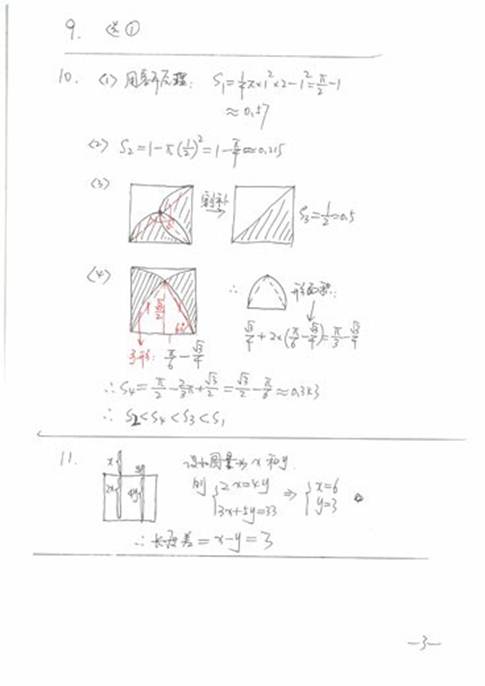 9. 选①
10. (1) 用容斥原理: S₁=¼π×1²×2-1²=π/2-1
≈0.57
(2) S₂=1-π(½)²=1-π/4≈0.215
(3) 割补 S₃=½=0.5
(4) 1 √3/2 60° ∴ 形面积:
弓形: π/6-√3/4 √3/4+2×(π/6-√3/4)=π/3-√3/4
∴S₄=π/2-2/3π+√3/2=√3/2-π/6≈0.343
∴ S₂<S₄<S₃<S₁
11. x y 设 x 和 y.
2x 4y 则 {2x=4y 3x+5y=33 ⇒ {x=6 y=3
∴ 长度差=x-y=3
—3—